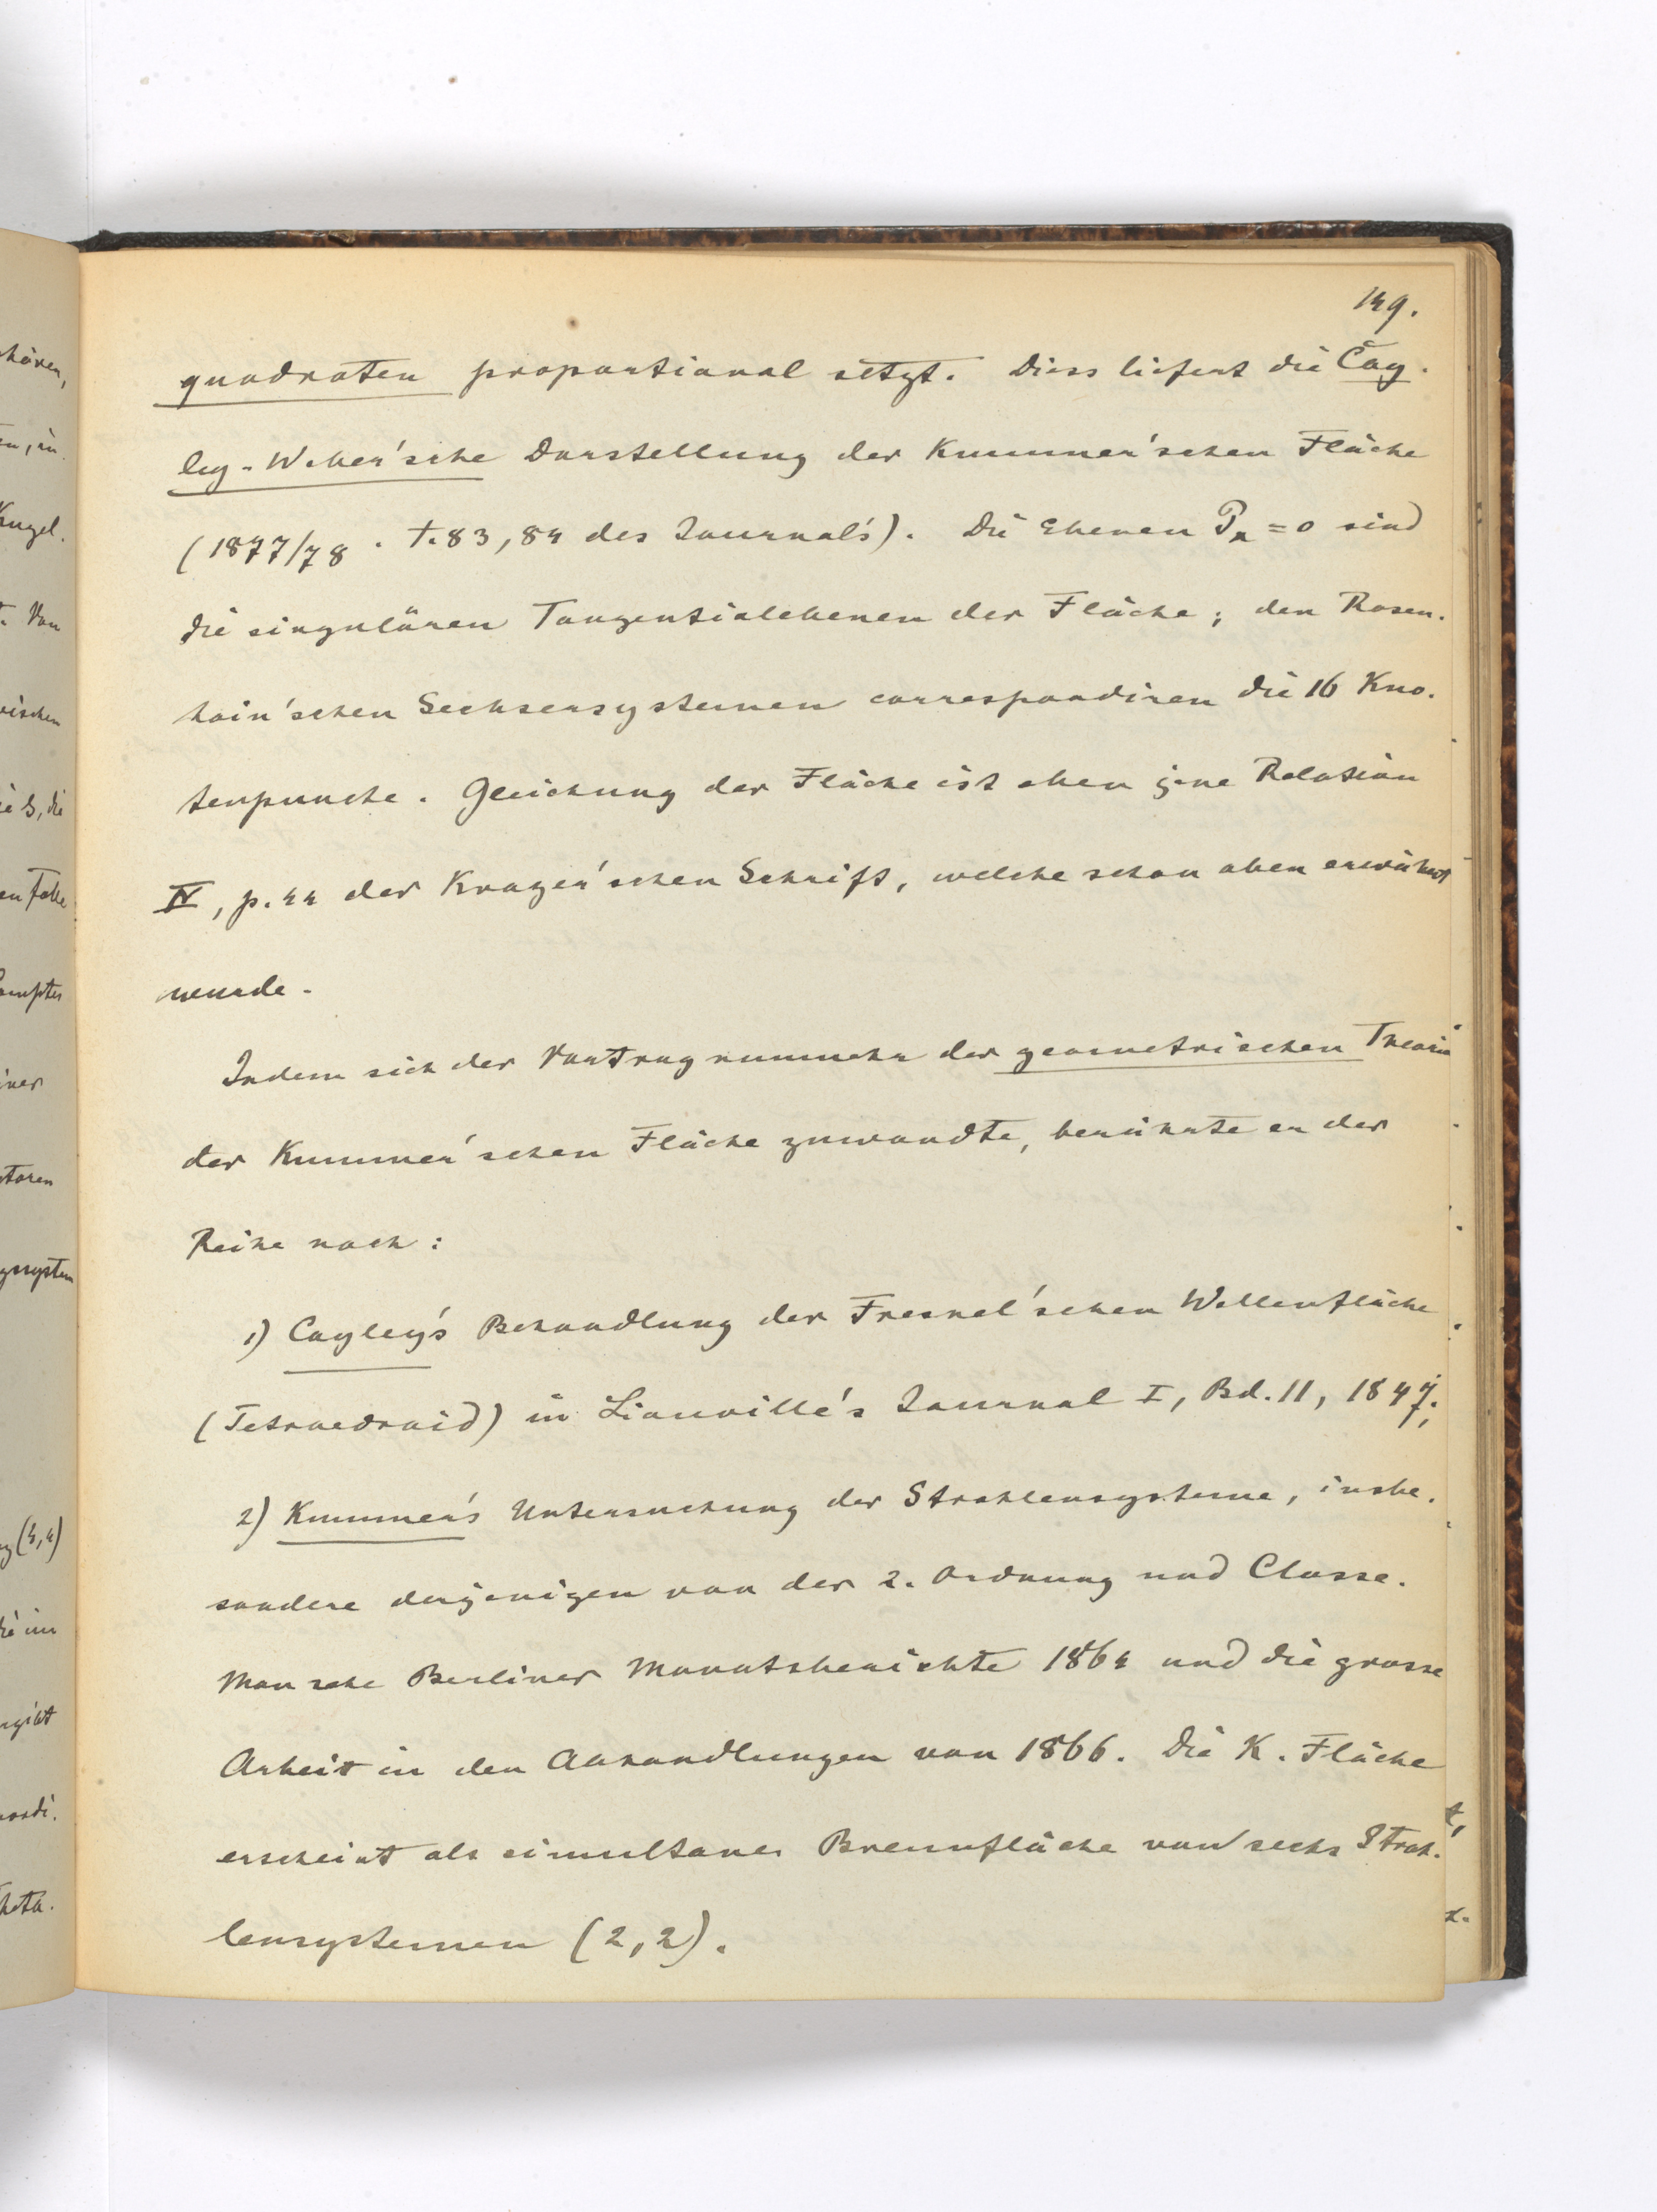 149.
quadraten proportional setzt. Diess liefert die Cay-
ley-Weber'sche Darstellung der Kummer'schen Fläche
(1877/78. t. 83, 84 des Journal's). Die Ebenen Pα = 0 sind
die singulären Tangentialebenen der Fläche; den Rosen-
hain'schen Sechsersystemen correspondiren die 16 Kno-
tenpuncte. Gleichung der Fläche ist eben jene Relation
IV, p. 44 der Krazer'schen Schrift, welche schon oben erwähnt
wurde.
Indem sich der Vortrag nunmehr der geometrischen Theorie
der Kummer'schen Fläche zuwandte, berührte er der
Reihe nach:
1) Cayley's Behandlung der Fresnel'schen Wellenfläche
(Tetraedroid) in Liouville's Journal I, Bd. 11, 1847;
2) Kummer's Untersuchung der Strahlensysteme, insbe-
sondere derjenigen von der 2. Ordnung und Classe.
Man sehe Berliner Monatsberichte 1864 und die grosse
Arbeit in den Abhandlungen von 1866. Die K. Fläche
erscheint als simultane Brennfläche von sechs Strah-
lensystemen (2,2).